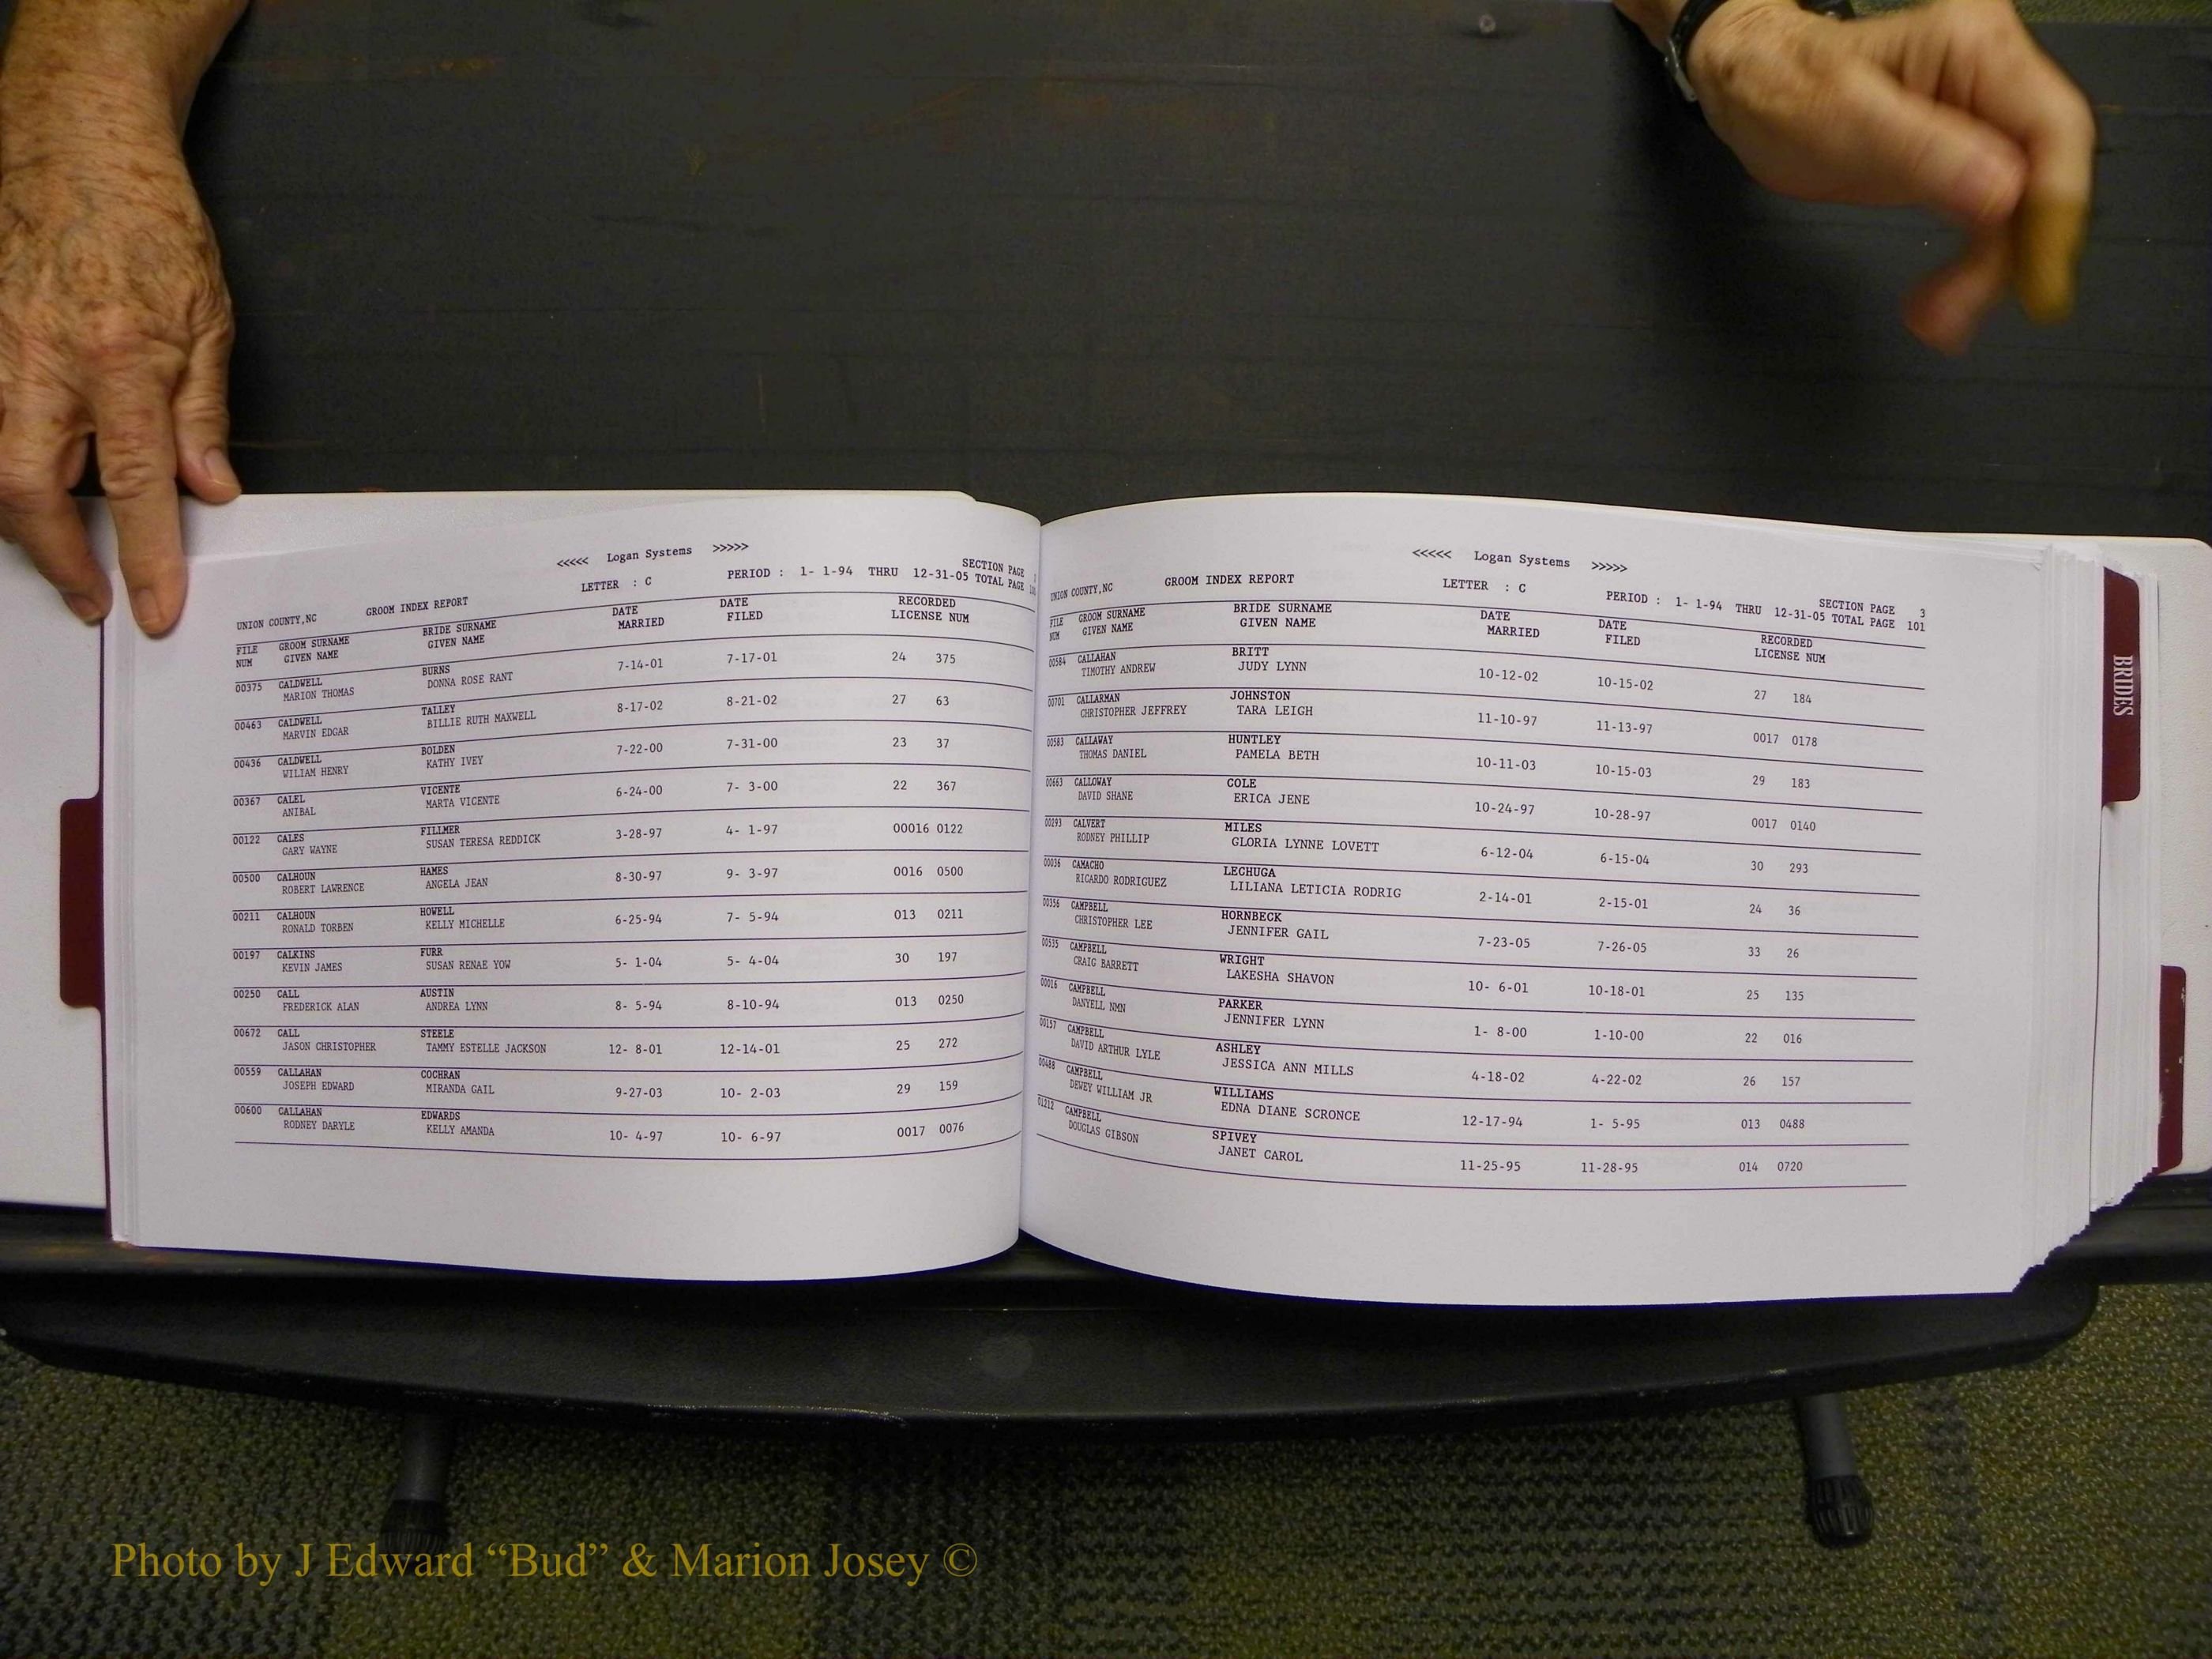 <<<<< Logan Systems >>>>>
SECTION PAGE
UNION COUNTY,NC GROOM INDEX REPORT LETTER : C PERIOD : 1- 1-94 THRU 12-31-05 TOTAL PAGE
FILE GROOM SURNAME BRIDE SURNAME DATE DATE RECORDED
NUM GIVEN NAME GIVEN NAME MARRIED FILED LICENSE NUM
00375 CALDWELL BURNS 7-14-01 7-17-01 24 375
MARION THOMAS DONNA ROSE RANT
00463 CALDWELL TALLEY 8-17-02 8-21-02 27 63
MARVIN EDGAR BILLIE RUTH MAXWELL
00436 CALDWELL BOLDEN 7-22-00 7-31-00 23 37
WILIAM HENRY KATHY IVEY
00367 CALEL VICENTE 6-24-00 7- 3-00 22 367
ANIBAL MARTA VICENTE
00122 CALES FILLMER 3-28-97 4- 1-97 00016 0122
GARY WAYNE SUSAN TERESA REDDICK
00500 CALHOUN HAMES 8-30-97 9- 3-97 0016 0500
ROBERT LAWRENCE ANGELA JEAN
00211 CALHOUN HOWELL 6-25-94 7- 5-94 013 0211
RONALD TORBEN KELLY MICHELLE
00197 CALKINS FURR 5- 1-04 5- 4-04 30 197
KEVIN JAMES SUSAN RENAE YOW
00250 CALL AUSTIN 8- 5-94 8-10-94 013 0250
FREDERICK ALAN ANDREA LYNN
00672 CALL STEELE 12- 8-01 12-14-01 25 272
JASON CHRISTOPHER TAMMY ESTELLE JACKSON
00559 CALLAHAN COCHRAN 9-27-03 10- 2-03 29 159
JOSEPH EDWARD MIRANDA GAIL
00600 CALLAHAN EDWARDS 10- 4-97 10- 6-97 0017 0076
RODNEY DARYLE KELLY AMANDA
<<<<< Logan Systems >>>>>
SECTION PAGE 3
UNION COUNTY,NC GROOM INDEX REPORT LETTER : C PERIOD : 1- 1-94 THRU 12-31-05 TOTAL PAGE 101
FILE GROOM SURNAME BRIDE SURNAME DATE DATE RECORDED
NUM GIVEN NAME GIVEN NAME MARRIED FILED LICENSE NUM
00584 CALLAHAN BRITT 10-12-02 10-15-02 27 184
TIMOTHY ANDREW JUDY LYNN
00701 CALLARMAN JOHNSTON 11-10-97 11-13-97 0017 0178
CHRISTOPHER JEFFREY TARA LEIGH
00583 CALLAWAY HUNTLEY 10-11-03 10-15-03 29 183
THOMAS DANIEL PAMELA BETH
00663 CALLOWAY COLE 10-24-97 10-28-97 0017 0140
DAVID SHANE ERICA JENE
00293 CALVERT MILES 6-12-04 6-15-04 30 293
RODNEY PHILLIP GLORIA LYNNE LOVETT
00036 CAMACHO LECHUGA 2-14-01 2-15-01 24 36
RICARDO RODRIGUEZ LILIANA LETICIA RODRIG
00356 CAMPBELL HORNBECK 7-23-05 7-26-05 33 26
CHRISTOPHER LEE JENNIFER GAIL
00535 CAMPBELL WRIGHT 10- 6-01 10-18-01 25 135
CRAIG BARRETT LAKESHA SHAVON
00016 CAMPBELL PARKER 1- 8-00 1-10-00 22 016
DANYELL NMN JENNIFER LYNN
00157 CAMPBELL ASHLEY 4-18-02 4-22-02 26 157
DAVID ARTHUR LYLE JESSICA ANN MILLS
00488 CAMPBELL WILLIAMS 12-17-94 1- 5-95 013 0488
DEWEY WILLIAM JR EDNA DIANE SCRONCE
01212 CAMPBELL SPIVEY 11-25-95 11-28-95 014 0720
DOUGLAS GIBSON JANET CAROL
BRIDES
Photo by J Edward “Bud” & Marion Josey ©